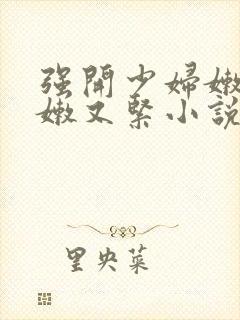 强開少婦嫩
嫩又緊小說
里央菜